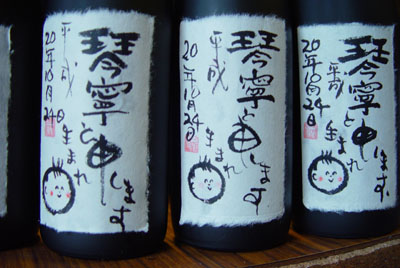 琴寧と申します
平成
20年10月24日
生まれ
琴寧と申します
平成
20年10月24日
生まれ
琴寧と申します
平成
20年10月24日
生まれ